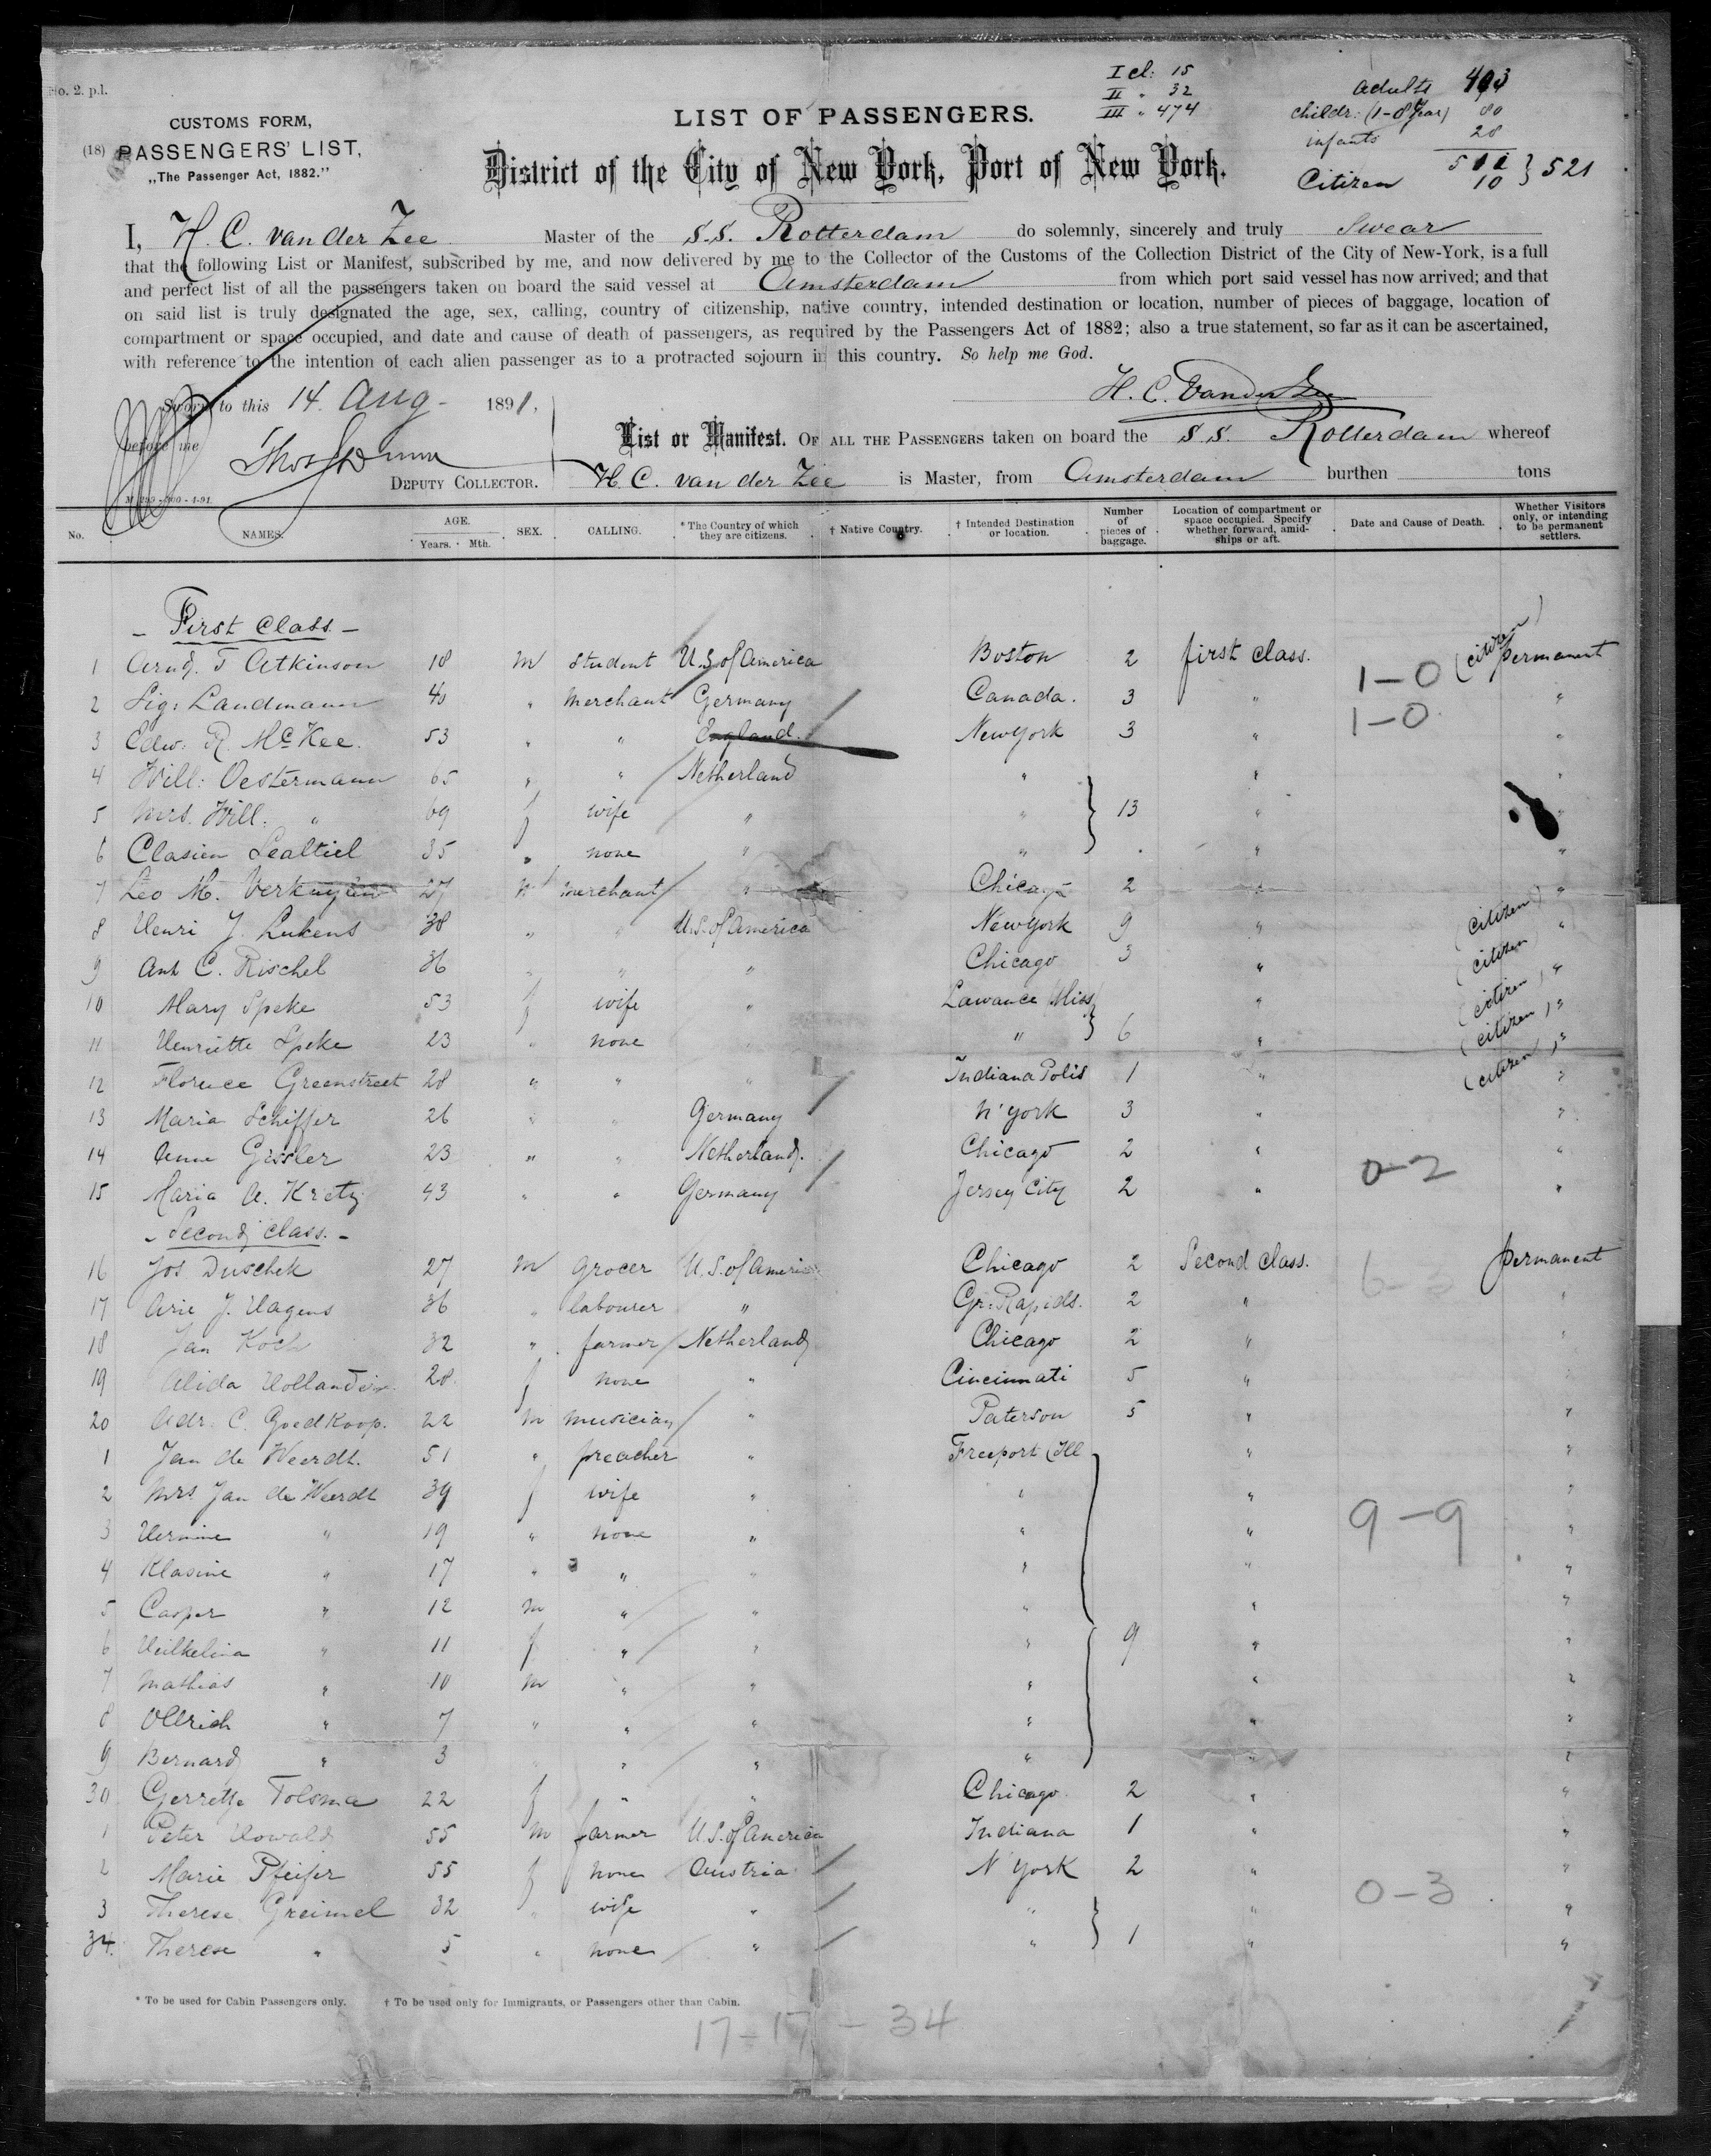 No. 2. p.l.
I cl: 15
II " 32
III " 474
adults 403
childr: (1-8 year) 80
infants 28
511
Citizen 10 } 521
CUSTOMS FORM,
(18) PASSENGERS' LIST,
„The Passenger Act, 1882."
LIST OF PASSENGERS.
District of the City of New York, Port of New York.
I, H. C. van der Zee Master of the S.S. Rotterdam do solemnly, sincerely and truly Swear
that the following List or Manifest, subscribed by me, and now delivered by me to the Collector of the Customs of the Collection District of the City of New-York, is a full
and perfect list of all the passengers taken on board the said vessel at Amsterdam from which port said vessel has now arrived; and that
on said list is truly designated the age, sex, calling, country of citizenship, native country, intended destination or location, number of pieces of baggage, location of
compartment or space occupied, and date and cause of death of passengers, as required by the Passengers Act of 1882; also a true statement, so far as it can be ascertained,
with reference to the intention of each alien passenger as to a protracted sojourn in this country. So help me God.
H. C. Vander Zee
Sworn to this 14. Aug - 1891,
before me
Thos Dunn
DEPUTY COLLECTOR.
List or Manifest. OF ALL THE PASSENGERS taken on board the S.S. Rotterdam whereof
H. C. van der Zee is Master, from Amsterdam burthen tons
No. NAMES. AGE. Years. Mth. SEX. CALLING. * The Country of which they are citizens. † Native Country. † Intended Destination or location. Number of pieces of baggage. Location of compartment or space occupied. Specify whether forward, amidships or aft. Date and Cause of Death. Whether Visitors only, or intending to be permanent settlers.
- First Class. -
1 Arnd. T Atkinson 18 m student U.S. of America Boston 2 first class. 1-0 (citizen) permanent
2 Sig: Landmann 40 " merchant Germany Canada. 3 " 1-0. "
3 Edw: R. McKee. 53 " " England. New York 3 " "
4 Will: Oestermann 65 " " Netherland " " "
5 Mrs. Will. " 69 f wife " " 13 " "
6 Clasien Sealtiel 35 " none " " " "
7 Leo M. Verkuylen 27 m merchant " Chicago 2 " "
8 Henri J. Lukens 38 " " U.S. of America New York 9 " (citizen) "
9 Ant C. Rischel 36 " " " Chicago 3 " (citizen) "
10 Mary Speke 53 f wife " Lawance (Miss) " (citizen) "
11 Henriette Speke 23 " none " 6 " (citizen) "
12 Florence Greenstreet 28 " " " Indiana Polis 1 " (citizen) "
13 Maria Schiffer 26 " " Germany N'york 3 " "
14 Anna Gissler 23 " " Netherland. Chicago 2 " 0-2 "
15 Maria A. Kretz 43 " " Germany Jersey City 2 " "
- Second class. -
16 Jos Duschek 27 m grocer U.S. of America Chicago 2 Second class. permanent
17 Arie J. Hagens 36 " labourer " Gr: Rapids. 2 " "
18 Jan Koch 32 " farmer Netherland Chicago 2 " "
19 Alida Hollander 28 f none " Cincinnati 5 " "
20 Adr. C. Goedkoop. 22 m musician " Paterson 5 " "
1 Jan de Weerdt. 51 " preacher " Freeport (Ill " "
2 Mrs Jan de Weerdt 39 f wife " " " "
3 Hermine " 19 " none " " " 9-9 "
4 Klasine " 17 " " " " " "
5 Casper " 12 m " " " " "
6 Wilhelina " 11 f " " " 9 " "
7 Mathias " 10 m " " " " "
8 Ollrich " 7 " " " " " "
9 Bernard " 3 " " " " "
30 Gerretje Tolsma 22 f " " Chicago 2 " "
1 Peter Howald 55 m farmer U.S. of America Indiana 1 " "
2 Marie Pfeifer 55 f none Austria N'York 2 " "
3 Therese Greimel 32 " wife " " " 0-3 "
34. Therese " 5 " none " " 1 " "
* To be used for Cabin Passengers only. † To be used only for Immigrants, or Passengers other than Cabin.
17-17-34